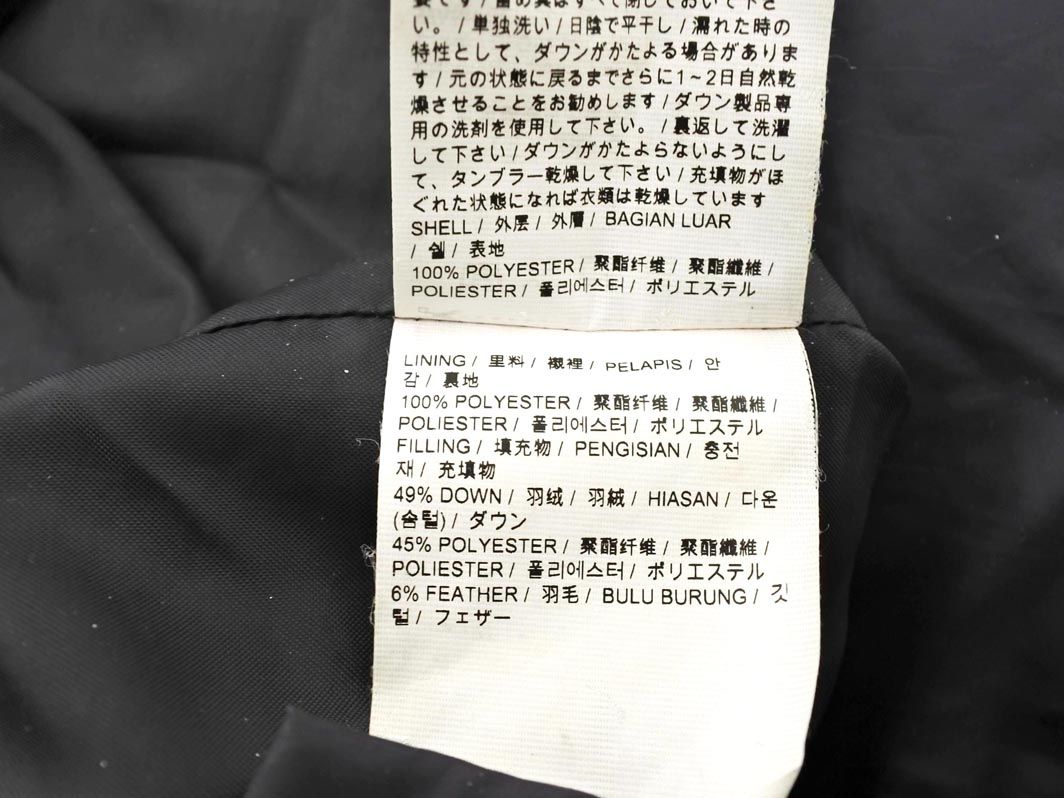 い。/単独洗い/日陰で平干し/濡れた時の
特性として、ダウンがかたよる場合がありま
す/元の状態に戻るまでさらに1~2日自然乾
燥させることをお勧めします/ダウン製品専
用の洗剤を使用して下さい。/裏返して洗濯
して下さい/ダウンがかたよらないようにし
て、タンブラー乾燥して下さい/充填物がほ
ぐれた状態になれば衣類は乾燥しています
SHELL / 外层 / 外層 / BAGIAN LUAR
/ 쉘 / 表地
100% POLYESTER / 聚酯纤维 / 聚酯纖維 /
POLIESTER / 폴리에스터 / ポリエステル
LINING / 里料 / 襯裡 / PELAPIS / 안
감 / 裏地
100% POLYESTER / 聚酯纤维 / 聚酯纖維 /
POLIESTER / 폴리에스터 / ポリエステル
FILLING / 填充物 / PENGISIAN / 충전
재 / 充填物
49% DOWN / 羽绒 / 羽絨 / HIASAN / 다운
(솜털) / ダウン
45% POLYESTER / 聚酯纤维 / 聚酯纖維 /
POLIESTER / 폴리에스터 / ポリエステル
6% FEATHER / 羽毛 / BULU BURUNG / 깃
털 / フェザー